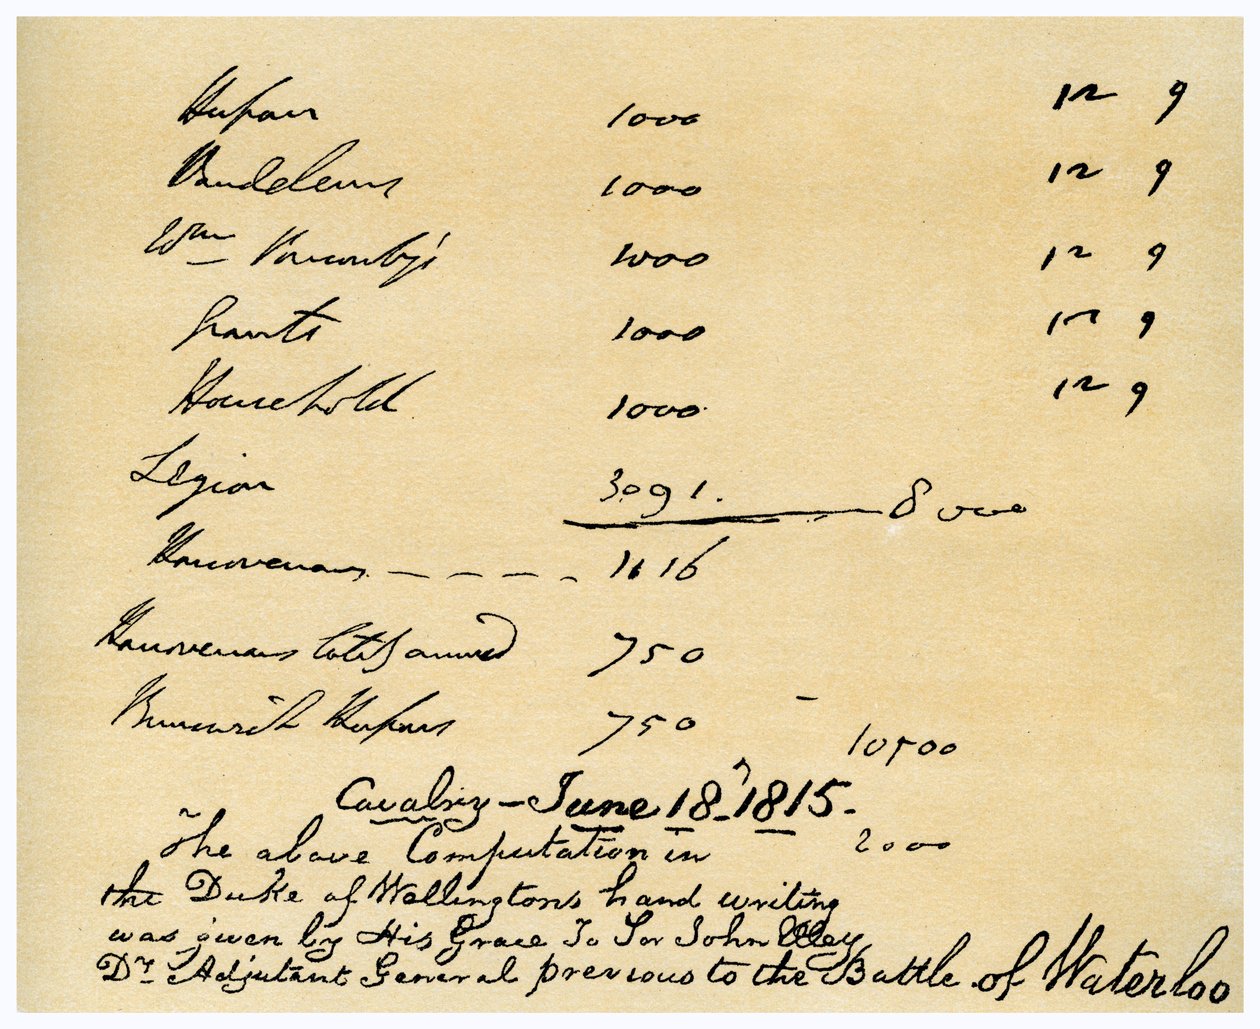 Hussars 1000 12 9
Vandeleurs 1000 12 9
Wm Ponsonby's 1000 12 9
Grants 1000 12 9
Household 1000 12 9
Legion 3091. 8000
Hanoverians - - - - 1116
Hanoverians lately arrived 750
Brunswick Hussars 750
10500
Cavalry - June 18, 1815.
The above Computation in 2000
the Duke of Wellingtons hand writing
was given by His Grace To Sir John Elley
Dy. Adjutant General previous to the Battle of Waterloo